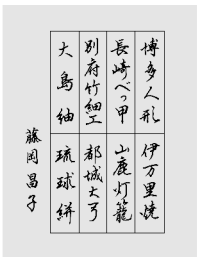 博多人形
伊万里焼
長崎べっ甲
山鹿灯籠
別府竹細工
都城大弓
大島紬
琉球絣
藤岡昌子